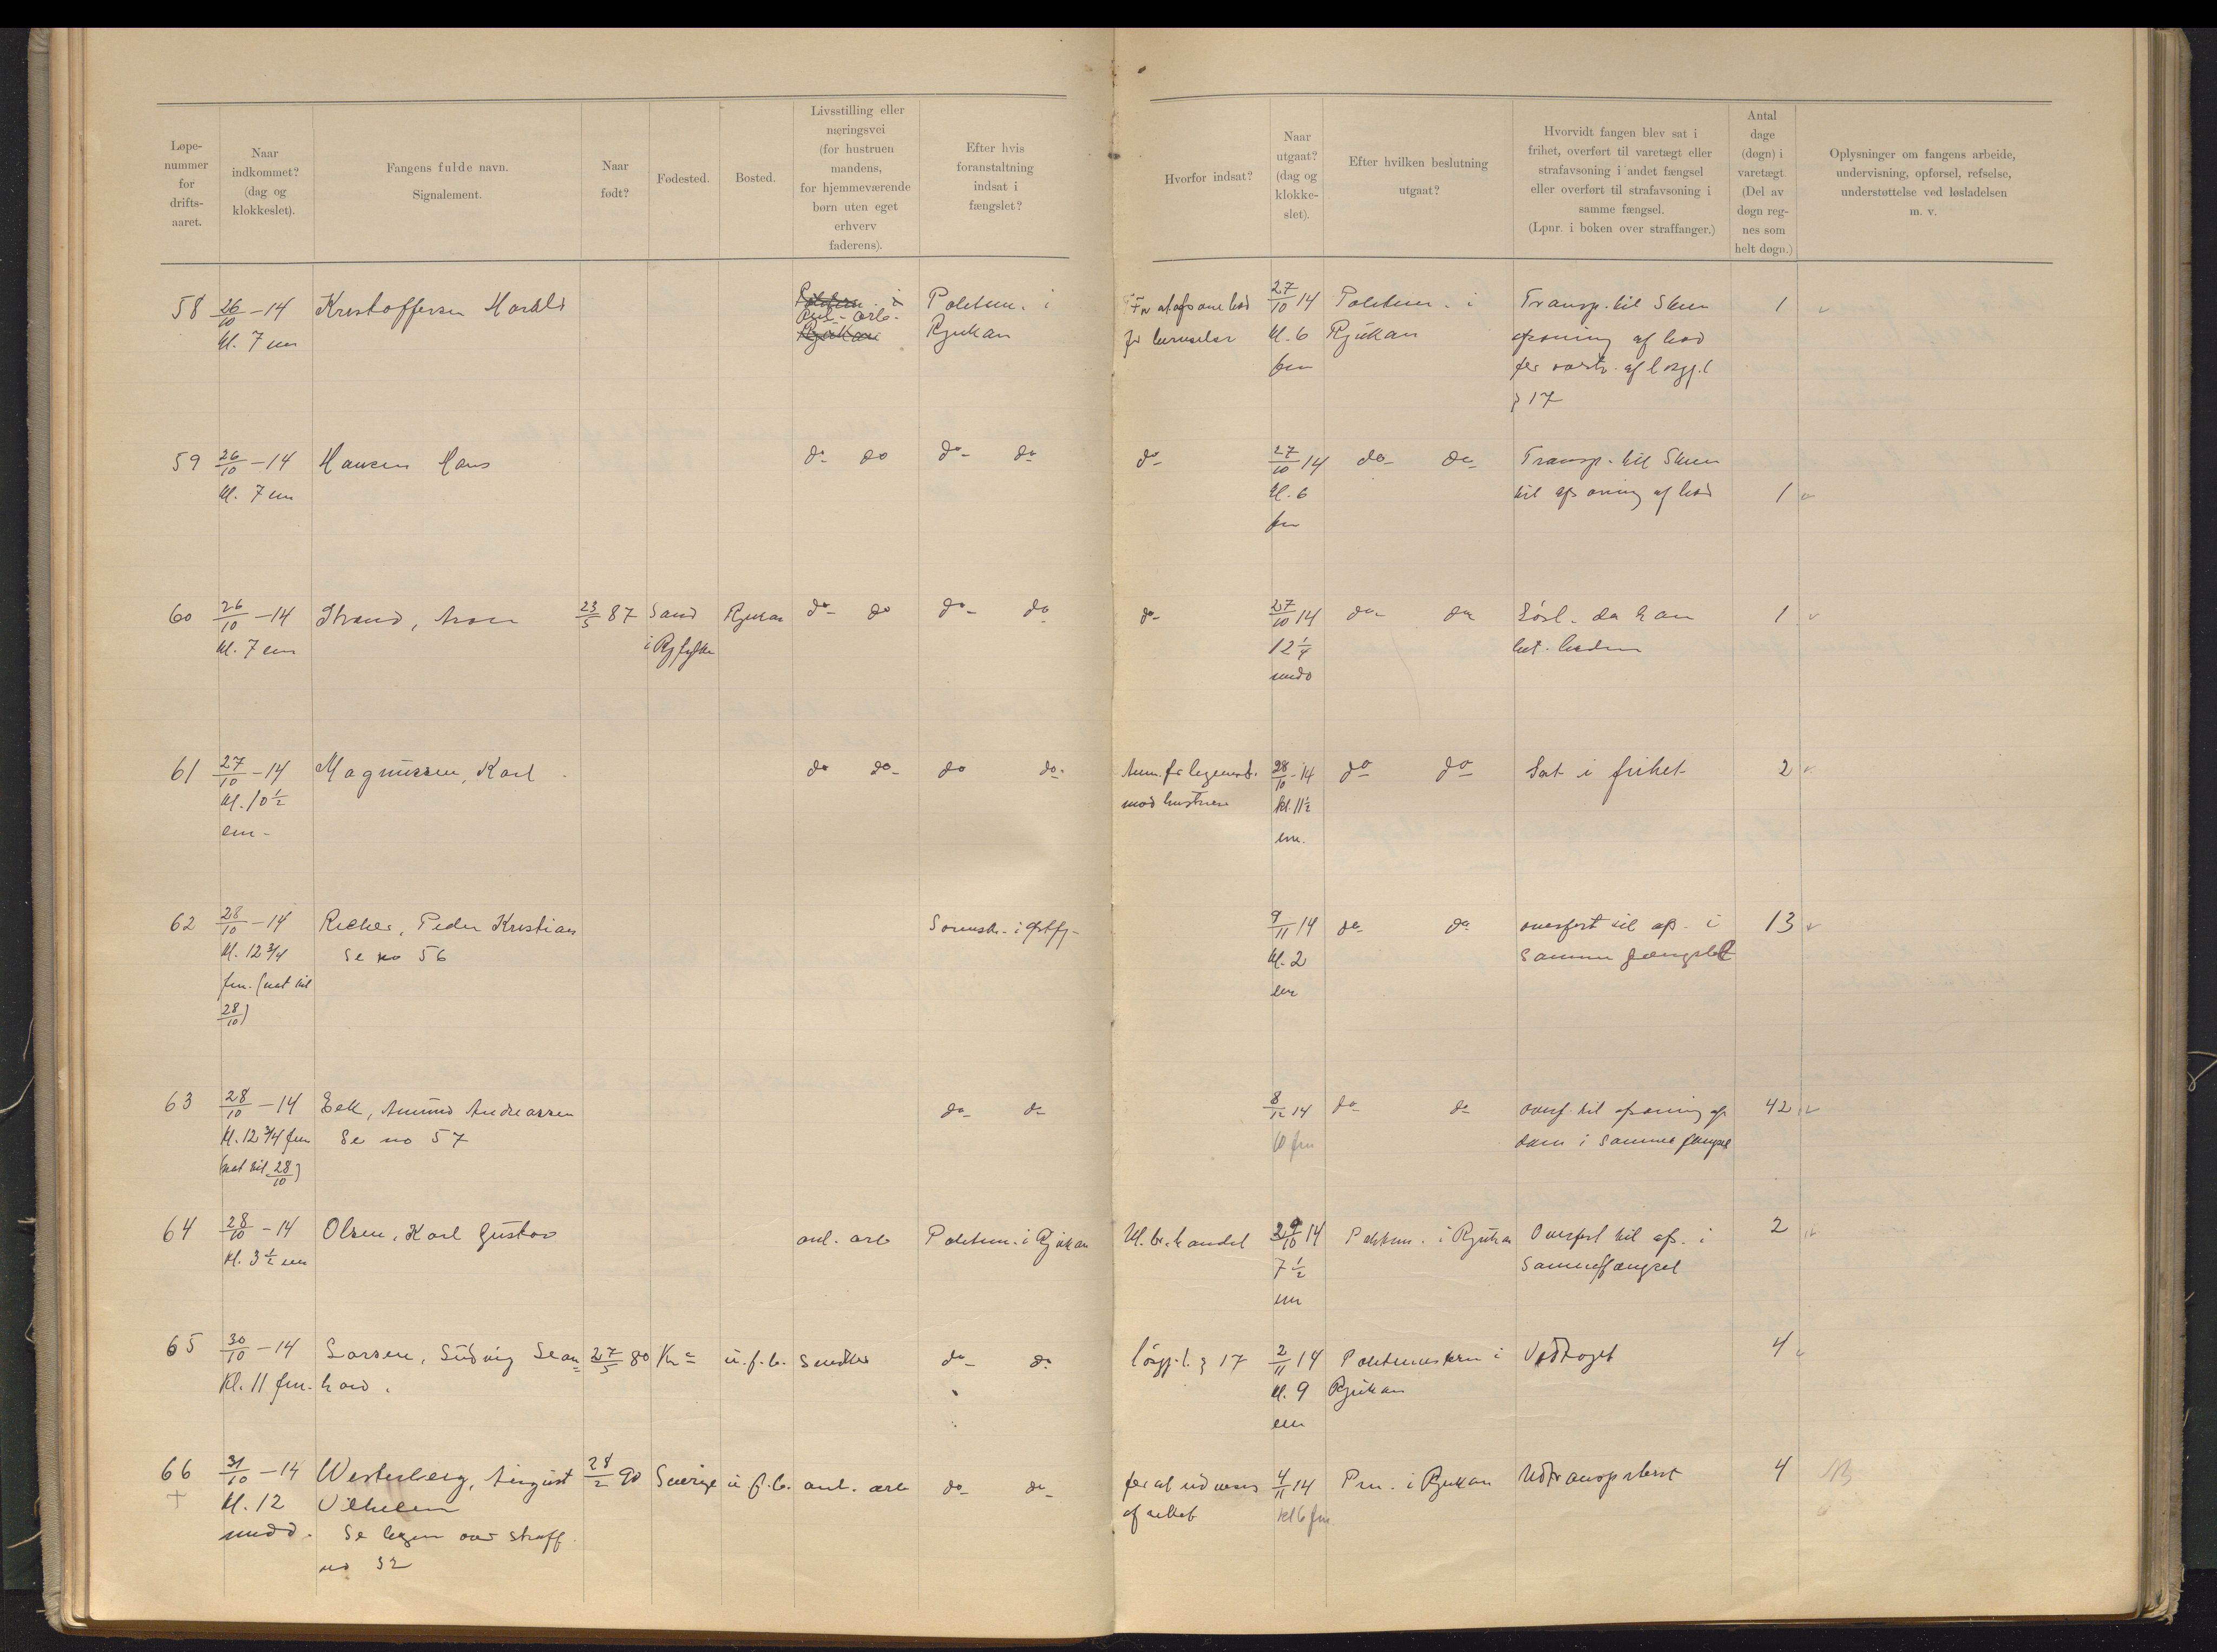 Løpe-
nummer
for
drifts-
aaret.
Naar
indkommet?
(dag og
klokkeslet).
Fangens fulde navn.
Signalement.
Naar
født?
Fødested.
Bosted.
Livsstilling eller
næringsvei
(for hustruen
mandens,
for hjemmeværende
børn uten eget
erhverv
faderens).
Efter hvis
foranstaltning
indsat i
fængslet?
Hvorfor indsat?
Naar
utgaat?
(dag og
klokke-
slet).
Efter hvilken beslutning
utgaat?
Hvorvidt fangen blev sat i
frihet, overført til varetægt eller
strafavsoning i andet fængsel
eller overført til strafavsoning i
samme fængsel.
(Lpnr. i boken over straffanger.)
Antal
dage
(døgn) i
varetægt
(Del av
døgn reg-
nes som
helt døgn.)
Oplysninger om fangens arbeide,
undervisning, opførsel, refselse,
understøttelse ved løsladelsen
m. v.
58 26/10 - 14 Kristoffersen Harald Politim. i 27/10 14 Politim. i Transp. til Skien 1
kl. 7 em anl. - arb. Rjukan for beruselse kl. 6 Rjukan afsoning af bod
fm
§ 17
59 26/10 - 14 Hansen Hans do do do do do 27/10 14 do do Transp. til Skien
kl. 7 em kl. 6 til afsoning af bod 1
fm
60 26/10 - 14 Strand, Aron 23/5 87 Sand Rjukan do do do do do 27/10 14 do do Løsl. da han 1
kl. 7 em i Ryfylke 12 1/4 bet. boden
midd
61 27/10 - 14 Magnussen, Karl do do do do Anm. for legemsb. 28/10 - 14 do do Sat i frihet 2
kl. 10 1/2 mod hustruen kl. 11 1/2
em - em.
62 28/10 - 14 Peder Kristian Sorensk. i 9/11 14 do do overført til afs. i 13
kl. 12 3/4 Se no 56 kl. 2 samme fængslet
fm. (nat til em
28/10)
63 28/10 - 14 Eek, Amund Andreassen do do 8/12 14 do do overf. til afsoning af 42
kl. 12 3/4 fm Se no 57 10 fm dom i samme fængsel
(nat til 28/10)
64 28/10 - 14 Olsen, Karl Gustav anl. arb Politim. i Rjukan Ul. br. handel 29/10 14 Politim. i Rjukan Overført til afs. i 2
kl. 3 1/2 em 7 1/2 samme fængsel
em
65 30/10 - 14 Larsen, Ludvig Lean= 27/5 80 Kra u. f. b. Smed do do løsgj. l. § 17 2/11 14 Politimesteren i Vedtaget 4
kl. 11 fm. hard. kl. 9 Rjukan
em
66 31/10 - 14 Westerberg, August 28/2 90 Sverige u f. b. anl. arb do do for at udvises 4/11 14 Pm. i Rjukan Udtransportert 4
+ kl. 12 Vilhelm af riket kl 6 fm
midd. Se bogen over straff
no 32